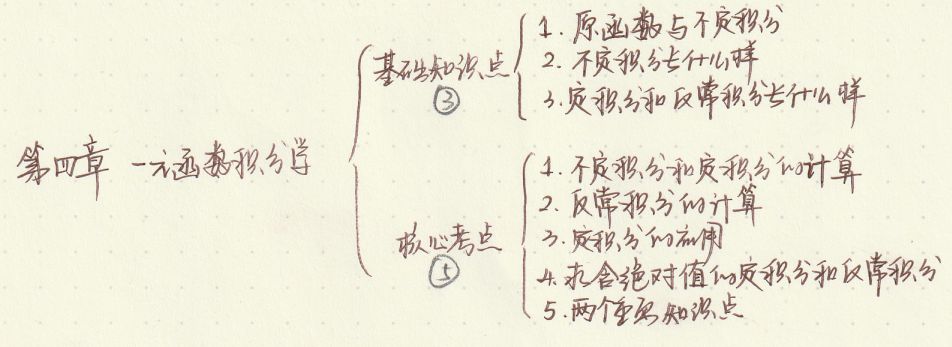 第四章 一元函数积分学
基础知识点
③
1. 原函数与不定积分
2. 不定积分长什么样
3. 定积分和反常积分长什么样
核心考点
⑤
1. 不定积分和定积分的计算
2. 反常积分的计算
3. 定积分的应用
4. 求含绝对值的定积分和反常积分
5. 两个重要知识点